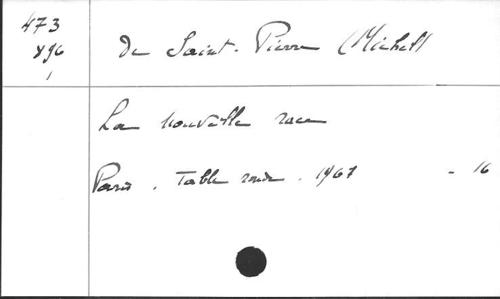 473
896
1
De Saint-Pierre (Michel)
La nouvelle race
Paris. Table ronde. 1967 - 16